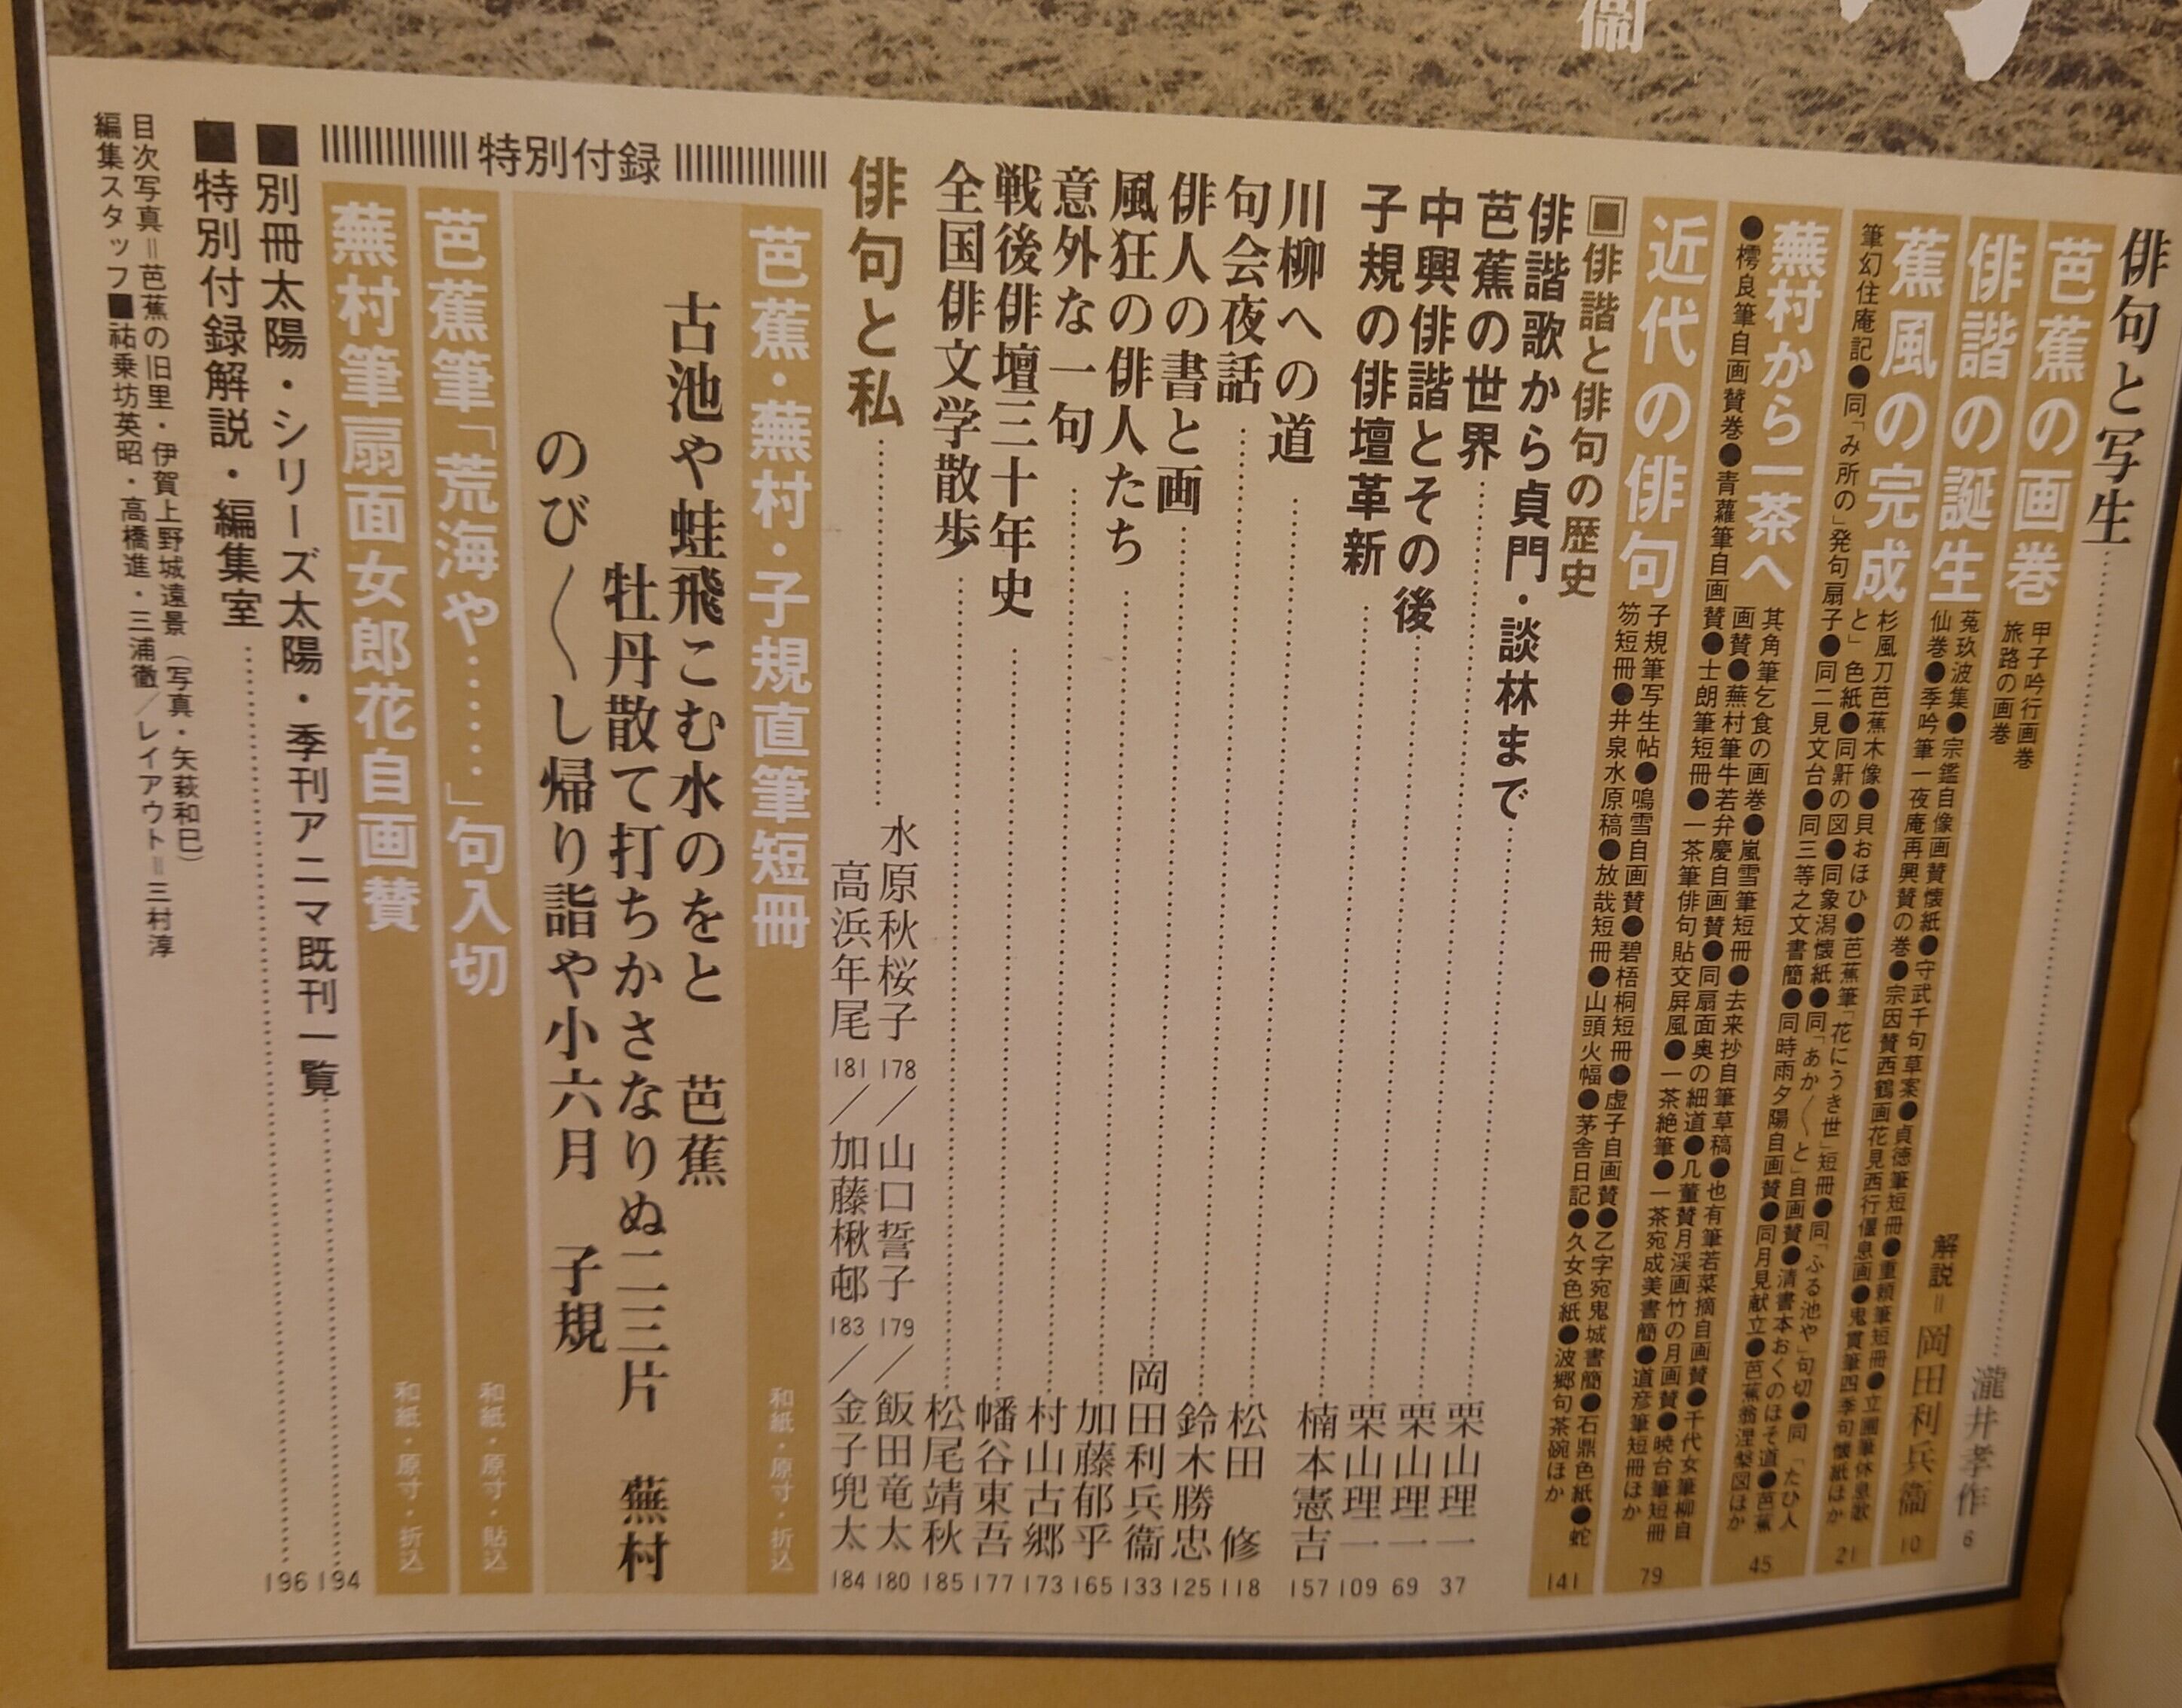 衞
俳句と写生
瀧井孝作
6
芭蕉の画巻
甲子吟行画巻
旅路の画巻
解説=岡田利兵衞
10
俳諧の誕生
菟玖波集●宗鑑自像画賛懐紙●守武千句草案●貞徳筆短冊●重頼筆短冊●立圃筆休息歌
仙巻●季吟筆一夜庵再興賛の巻●宗因賛西鶴画花見西行偃息画●鬼貫筆四季句懐紙ほか
21
蕉風の完成
杉風刀芭蕉木像●貝おほひ●芭蕉筆「花にうき世」短冊●同「ふる池や」句切●同「たひ人
と」色紙●同鼾の図●同象潟懐紙●同「あか〱と」自画賛●清書本おくのほそ道●芭蕉
筆幻住庵記●同「み所の」発句扇子●同二見文台●同三等之文書簡●同時雨夕陽自画賛●同月見献立●芭蕉翁涅槃図ほか
45
蕪村から一茶へ
其角筆乞食の画巻●嵐雪筆短冊●去来抄自筆草稿●也有筆若菜摘自画賛●千代女筆柳自
画賛●蕪村筆牛若弁慶自画賛●同扇面奥の細道●几董賛月渓画竹の月画賛●暁台筆短冊
●樗良筆自画賛巻●青蘿筆自画賛●士朗筆短冊●一茶筆俳句貼交屏風●一茶絶筆●一茶宛成美書簡●道彦筆短冊ほか
79
近代の俳句
子規筆写生帖●鳴雪自画賛●碧梧桐短冊●虚子自画賛●乙字宛鬼城書簡●石鼎色紙●蛇
笏短冊●井泉水原稿●放哉短冊●山頭火幅●茅舎日記●久女色紙●波郷句茶碗ほか
141
▣俳諧と俳句の歴史
俳諧歌から貞門・談林まで
栗山理一
37
芭蕉の世界
栗山理一
69
中興俳諧とその後
栗山理一
109
子規の俳壇革新
楠本憲吉
157
川柳への道
松田 修
118
句会夜話
鈴木勝忠
125
俳人の書と画
岡田利兵衞
133
風狂の俳人たち
加藤郁乎
165
意外な一句
村山古郷
173
戦後俳壇三十年史
幡谷東吾
177
全国俳文学散歩
松尾靖秋
185
俳句と私
水原秋桜子 178/山口誓子 179/飯田竜太 180
高浜年尾 181/加藤楸邨 183/金子兜太 184
特別付録
芭蕉・蕪村・子規直筆短冊
和紙・原寸・折込
古池や蛙飛こむ水のをと 芭蕉
牡丹散て打ちかさなりぬ二三片 蕪村
のび〱し帰り詣や小六月 子規
芭蕉筆「荒海や……」句入切
和紙・原寸・貼込
蕪村筆扇面女郎花自画賛
和紙・原寸・折込
■別冊太陽・シリーズ太陽・季刊アニマ既刊一覧
194
■特別付録解説・編集室
196
目次写真=芭蕉の旧里・伊賀上野城遠景(写真・矢萩和巳)
編集スタッフ■祐乗坊英昭・高橋進・三浦徹/レイアウト=三村淳